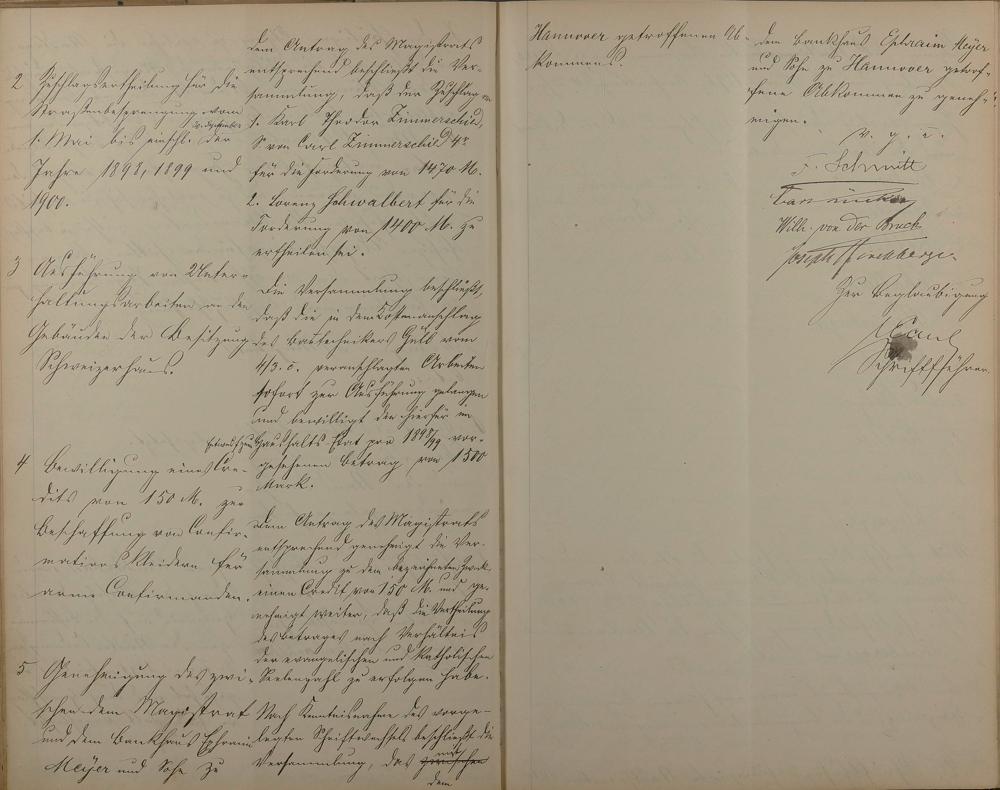 2 Zuschlagsertheilung für die
Straßenbesprengung vom
1. Mai bis einschl. der
Jahre 1898, 1899 und
1900.
dem Antrag des Magistrats
entsprechend beschließt die Ver-
sammlung, daß der Zuschlag an
1. Karl Theodor Zimmerschied,
S von Carl Zimmerschied 4r
für die Forderung von 1470 M.
2. Lorenz Schwalbert für die
Forderung von 1400 M. zu
ertheilen sei.
3 Ausführung von Unter-
haltungsarbeiten an den
Gebäuden der Besitzung
Schweizerhaus.
Die Versammlung beschließt,
daß die in dem Kostenanschlag
des Bautechnikers Gülb vom
4/3. c. veranschlagten Arbeiten
sofort zur Ausführung gelangen
und bewilligt den hierfür im
Entwurf zum Haushalts-Etat pro 1898/99 vor-
gesehenen Betrag von 1500
Mark.
4 Bewilligung eines Cre-
dits von 150 M. zur
Beschaffung von Confir-
mations Kleidern für
arme Confirmanden.
Dem Antrag des Magistrats
entsprechend genehmigt die Ver-
sammlung zu dem bezeichneten Zweck
einen Credit von 150 M. und ge-
nehmigt weiter, daß die Vertheilung
des Betrages nach Verhältnis
der evangelischen und katholischen
Seelenzahl zu erfolgen habe.
5 Genehmigung des zwi-
schen dem Magistrat
und dem Bankhaus Ephraim
Meyer und Sohn zu
Nach Kenntnisnahme des vorge-
legten Schriftwechsels beschließt die
Versammlung, das zwischen mit
dem
Hannover getroffenen Ab-
kommens.
dem Bankhaus Ephraim Meyer
und Sohn zu Hannover getrof-
fene Abkommen zu geneh-
migen.
v. g. u.
F. Schmitt
Wilh. von der Bruck
Joseph
Zur Beglaubigung
Schriftführer.